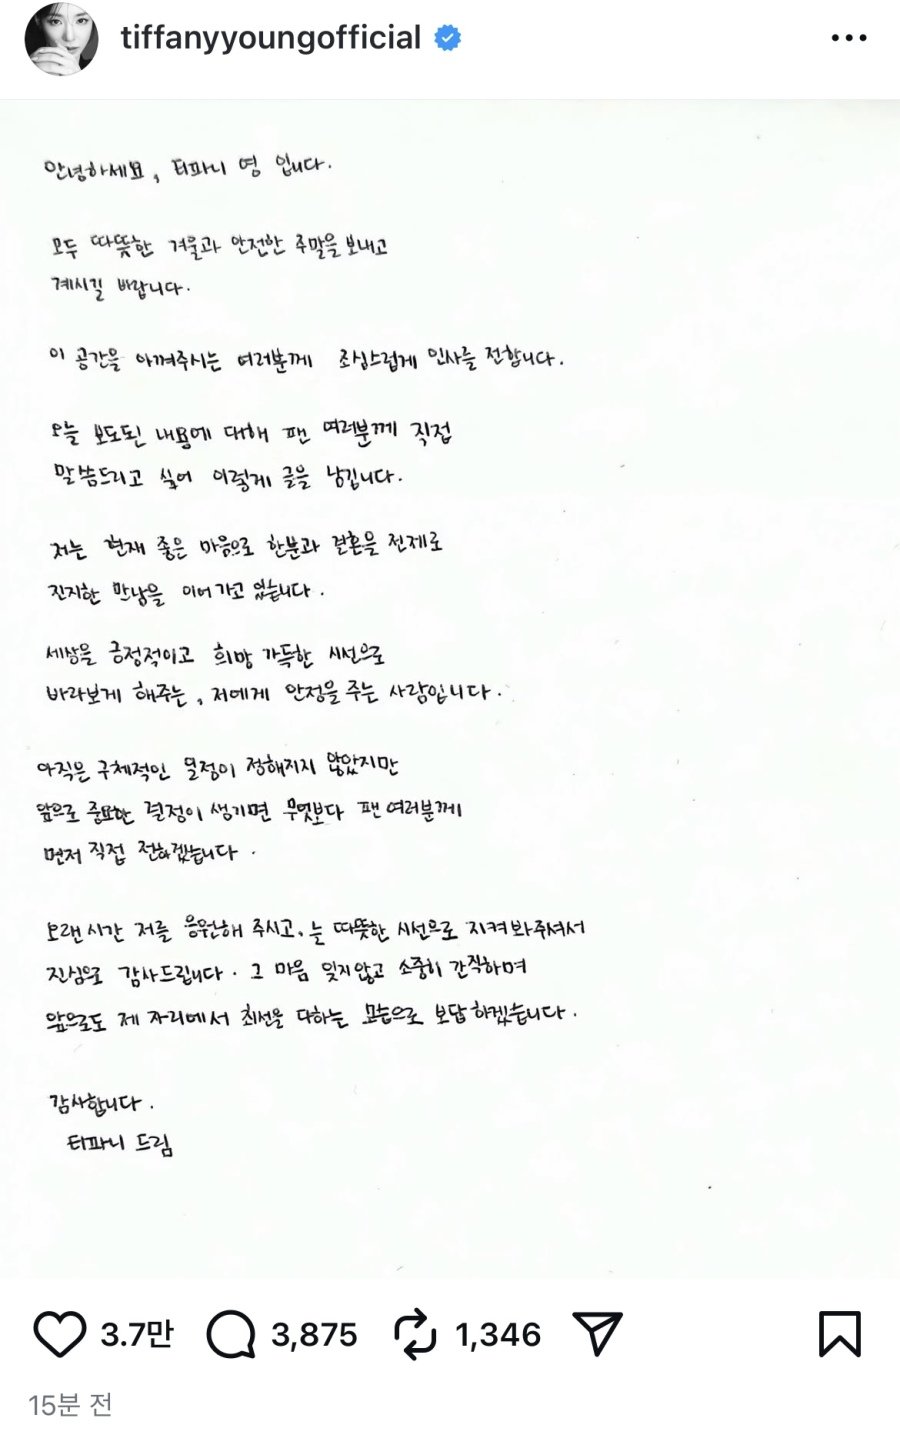 tiffanyyoungofficial
안녕하세요, 티파니 영 입니다.
모두 따뜻한 겨울과 안전한 주말을 보내고
계시길 바랍니다.
이 공간을 아껴주시는 여러분께 조심스럽게 인사를 전합니다.
오늘 보도된 내용에 대해 팬 여러분께 직접
말씀드리고 싶어 이렇게 글을 남깁니다.
저는 현재 좋은 마음으로 한분과 결혼을 전제로
진지한 만남을 이어가고 있습니다.
세상을 긍정적이고 희망 가득한 시선으로
바라보게 해주는, 저에게 안정을 주는 사람입니다.
아직은 구체적인 일정이 정해지지 않았지만
앞으로 중요한 결정이 생기면 무엇보다 팬 여러분께
먼저 직접 전하겠습니다.
오랜시간 저를 응원해 주시고, 늘 따뜻한 시선으로 지켜봐주셔서
진심으로 감사드립니다. 그 마음 잊지않고 소중히 간직하며
앞으로도 제 자리에서 최선을 다하는 모습으로 보답하겠습니다.
감사합니다.
티파니 드림
3.7만 3,875 1,346
15분 전